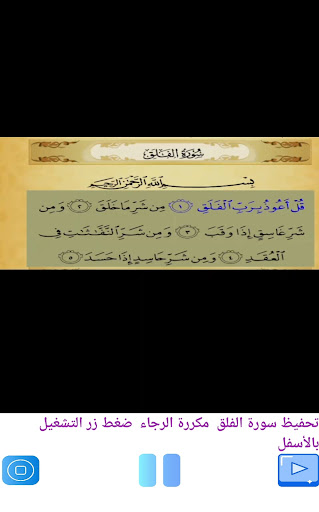 سورة الفلق
بسم الله الرحمن الرحيم
قُلْ أَعُوذُ بِرَبِّ الْفَلَقِ ١ مِن شَرِّ مَا خَلَقَ ٢ وَمِن
شَرِّ غَاسِقٍ إِذَا وَقَبَ ٣ وَمِن شَرِّ النَّفَّاثَاتِ فِي
الْعُقَدِ ٤ وَمِن شَرِّ حَاسِدٍ إِذَا حَسَدَ ٥
تحفيظ سورة الفلق مكررة الرجاء ضغط زر التشغيل
بالأسفل